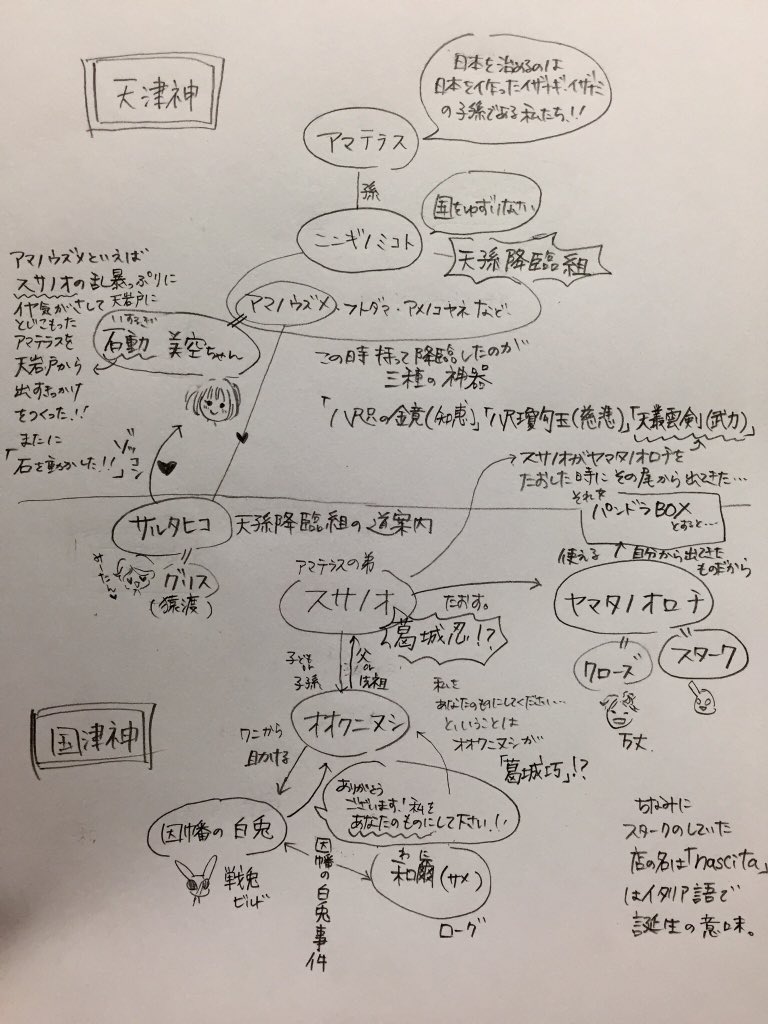 天津神
日本を治めるのは
日本を作ったイザナギ・イザナミ
の子孫である私たち!!
アマテラス
孫
国をゆずりなさい
ニニギノミコト
天孫降臨組
アマノウズメといえば
スサノオの乱暴っぷりに
イヤ気がさして天岩戸に
とじこもった
アマテラスを
天岩戸から
出すきっかけ
をつくった!!
まさに
「石を動かした!!」
ゾッコン
アマノウズメ、フトダマ・アメノコヤネなど
いするぎ
石動 美空ちゃん
この時持って降臨したのが
三種の神器
「八咫の金竟(知恵)」「八尺瓊勾玉(慈悲)」「天叢雲剣(武力)」
スサノオがヤマタノオロチを
たおした時にその尾から出てきた…
それを
パンドラBOX
とすると…
サルタヒコ
天孫降臨組の道案内
みーたん
グリス
(猿渡)
使える
自分から出てきた
ものだから
アマテラスの弟
スサノオ
たおす。
ヤマタノオロチ
葛城忍!?
クローズ
スターク
万丈
子ども or 子孫
父 or 先祖
国津神
オオクニヌシ
私を
あなたのものにしてください…
ということは
オオクニヌシが
「葛城巧」!?
ワニから
助ける
ありがとう
ございます!私を
あなたのものにして下さい!!
因幡の白兎
戦兎
ビルド
因幡の白兎事件
わに
和爾(サメ)
ローグ
ちなみに
スタークのしていた
店の名は「nascita」
はイタリア語で
誕生の意味。